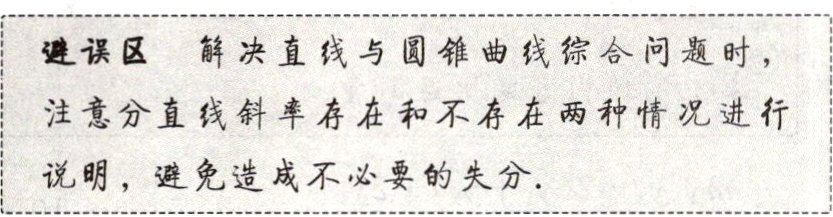 避误区 解决直线与圆锥曲线综合问题时，
注意分直线斜率存在和不存在两种情况进行
说明，避免造成不必要的失分.